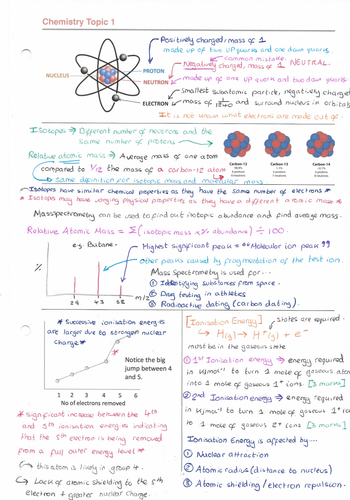 Chemistry Topic 1
Positively charged, mass of 1
made up of two up quarks and one down quark.
common mistake.
Negatively charged, mass of 1 NEUTRAL.
NUCLEUS
PROTON
NEUTRON
made up of one up quark and two down quarks
Smallest subatomic particle, negatively charged
ELECTRON
mass of and surround nucleus in orbitals
It is not known what electrons are made out of.
Isotopes → Different number of neutrons and the
same number of protons
Carbon-12
Carbon-13
Carbon-14
6 protons
6 neutrons
6 protons
7 neutrons
6 protons
8 neutrons
Relative atomic mass → Average mass of one atom
compared to 1/12 the mass of a carbon-12 atom
same definition for isotopic mass and molecular mass
* Isotopes have similar chemical properties as they have the same number of electrons *
* Isotopes may have varying physical properties as they have a different atomic mass *
Mass spectrometry can be used to find out isotopic abundance and find average mass.
Relative Atomic Mass = Σ(isotopic mass x % abundance) ÷ 100.
e.g Butane.
Highest significant peak = "Molecular ion peak"
other peaks caused by fragmentation of the test ion.
%
Mass Spectrometry is used for...
① Identifying substances from space.
② Drug testing in athletics
③ Radioactive dating (carbon dating).
29 43 58
m/z
* Successive ionisation energies
are larger due to stronger nuclear
charge *
Notice the big
jump between 4
and 5.
1 2 3 4 5 6
No of electrons removed
* significant increase between the 4th
and 5th ionisation energies indicating
that the 5th electron is being removed
from a full outer energy level *
↳ this atom is likely in group 4.
↳ Lack of atomic shielding to the 5th
electron + greater nuclear charge.
[Ionisation Energy]
states are required.
↳ H(g) → H⁺(g) + e⁻
must be in the gaseous state
① 1st Ionisation energy → energy required
in kJmol⁻¹ to turn 1 mole of gaseous atoms
into 1 mole of gaseous 1+ ions. [3 marks]
② 2nd Ionisation energy → energy required
in kJmol⁻¹ to turn 1 mole of gaseous 1+ ions
to 1 mole of gaseous 2+ ions [3 marks]
Ionisation Energy is affected by...
① Nuclear attraction
② Atomic radius (distance to nucleus)
③ Atomic shielding / electron repulsion.